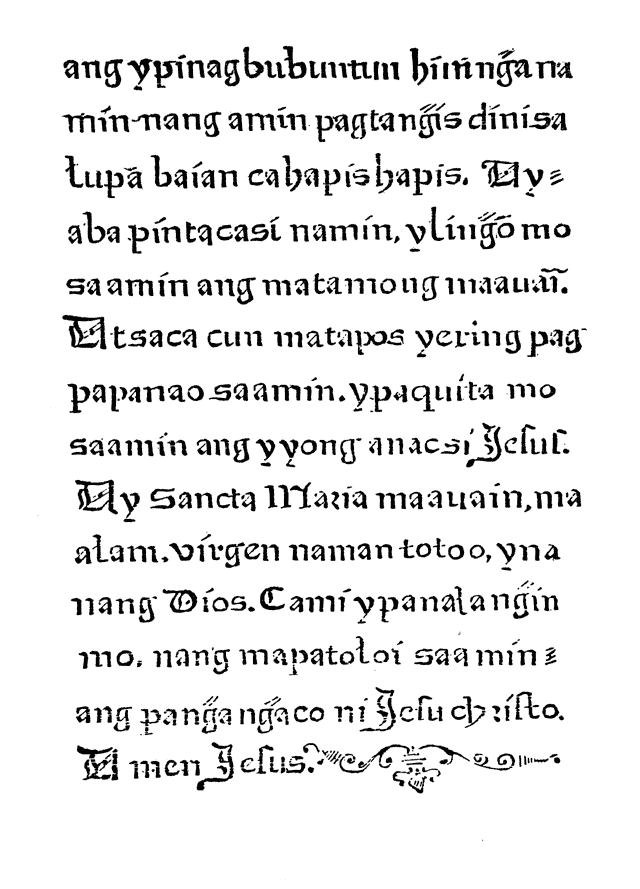 ang ypinagbubuntun hiniñg̃ana
min nang amin pagtang̃is dinisa
lupã baian cahapishapis. Ay
aba pintacasi namin, yling̃õ mo
saamin ang matamong maauaĩ.
At saca cun matapos yering pag
papanao saamin. ypaquita mo
saamin ang yyong anacsi Jeſuſ.
Ay Sancta Maria maauain, ma
alam. virgen naman totoo, yna
nang Dios. Cami ypanalang̃in
mo. nang mapatoloi saamin
ang pang̃ang̃aco ni Jeſu chriſto.
Amen Jeſus.